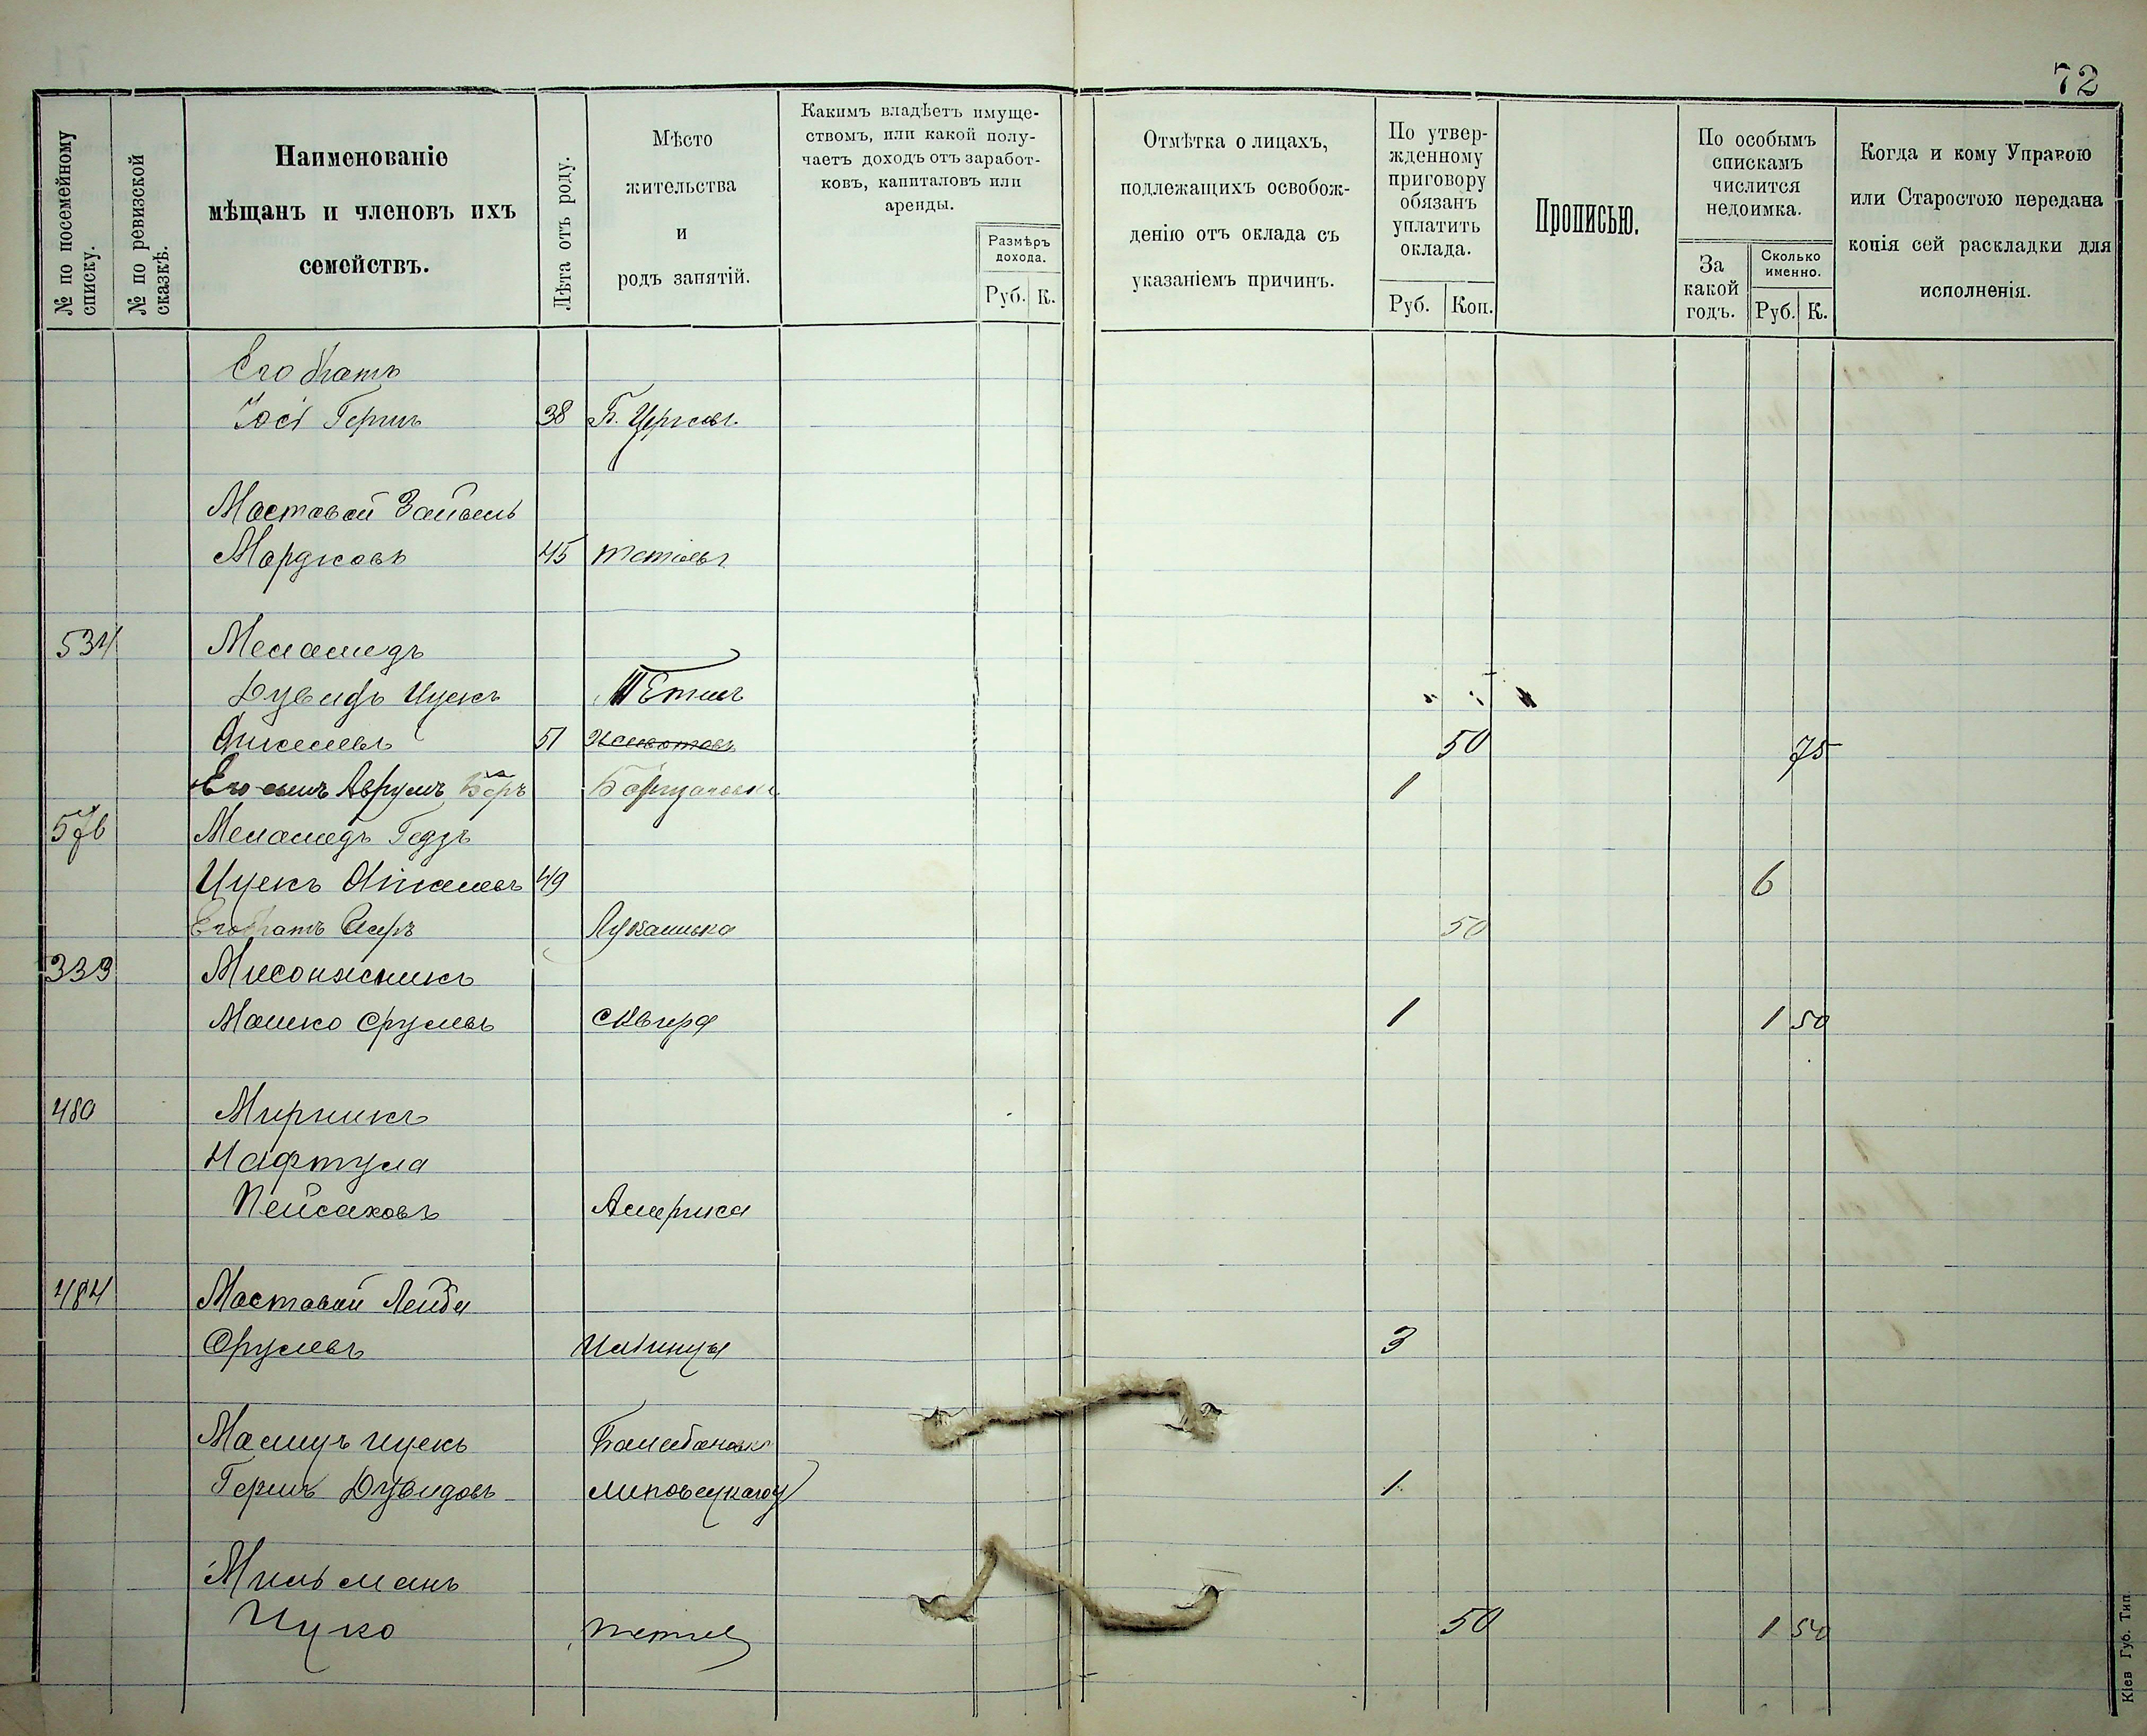 72
№ по посемейному списку.
№ по ревизской сказкѣ.
Наименованіе
мѣщанъ и членовъ ихъ
семействъ.
Лѣта отъ роду.
Мѣсто
жительства
и
родъ занятій.
Какимъ владѣетъ имуще-
ствомъ, или какой полу-
чаетъ доходъ отъ заработ-
ковъ, капиталовъ или
аренды.
Размѣръ
дохода.
Руб. К.
Отмѣтка о лицахъ,
подлежащихъ освобож-
денію отъ оклада съ
указаніемъ причинъ.
По утвер-
жденному
приговору
обязанъ
уплатить
оклада.
Руб. Коп.
Прописью.
По особымъ
спискамъ
числится
недоимка.
За
какой
годъ.
Сколько
именно.
Руб. К.
Когда и кому Управою
или Старостою передана
копія сей раскладки для
исполненія.
Его братъ
Іосі Гершъ 38 Б. Церковь
Мостовой Зайвель
Мордковъ 45 тетіевъ
534 Меламедъ
Дувидъ Ицекъ
51 50 75
Его сынъ Аврумъ Беръ 1
576 Меламедъ
Ицекъ 49 6
Его братъ Лукашовка 50
339 Мисонжникъ
Мошко Срулевъ Сквира 1 1 50
480 Мирникъ
Нафтула
Пейсаховъ Америка
484 Мостовой Лейба
Срулевъ 3
Ицекъ
Гершъ Дувидовъ Липовецкаго у 1
Мильманъ
Ицко 50 1 50
Кіев Губ. Тип.